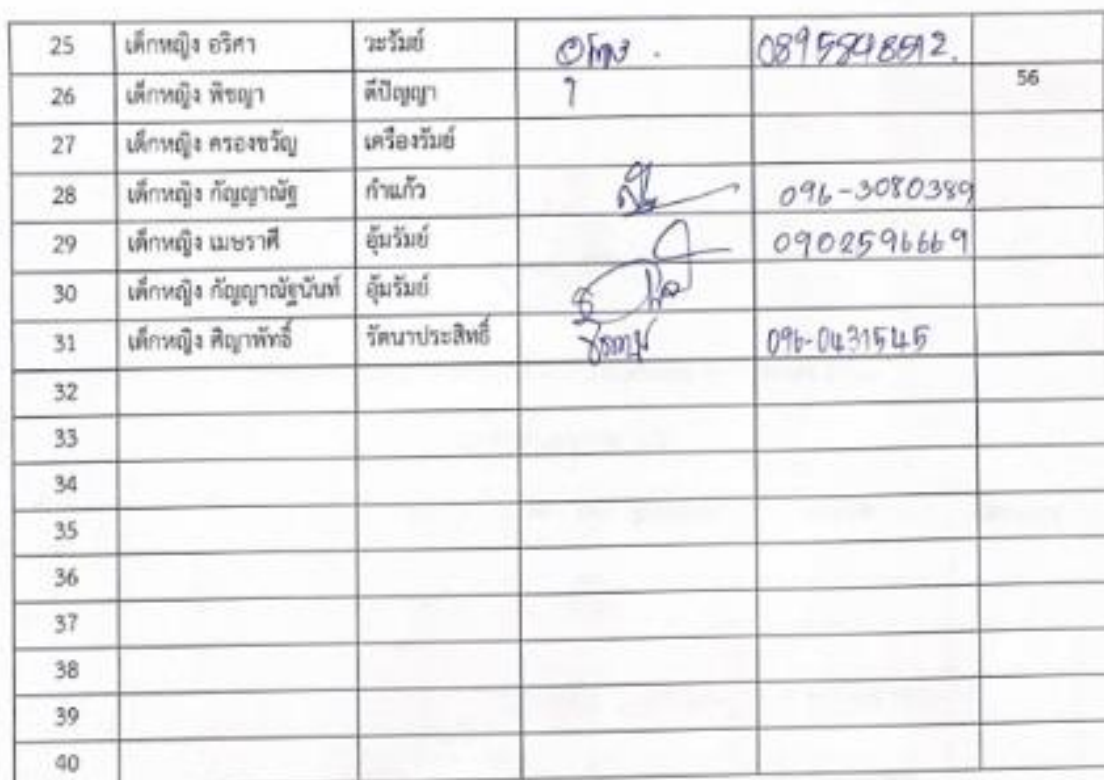 25 เด็กหญิง อริศา วะรัมย์ 0895848512.
26 เด็กหญิง พิชญา ดีปัญญา 56
27 เด็กหญิง ครองขวัญ เครืองรัมย์
28 เด็กหญิง กัญญาณัฐ กำแก้ว 096-3080389
29 เด็กหญิง เมษราศี อุ้มรัมย์ 0902596669
30 เด็กหญิง กัญญาณัฐนันท์ อุ้มรัมย์
31 เด็กหญิง ศิญาพัทธิ์ รัตนาประสิทธิ์ 096-0431545
32
33
34
35
36
37
38
39
40